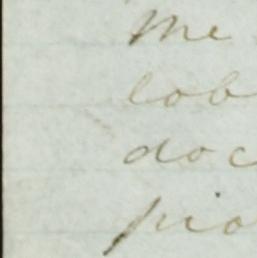 me
lob
doc
pio